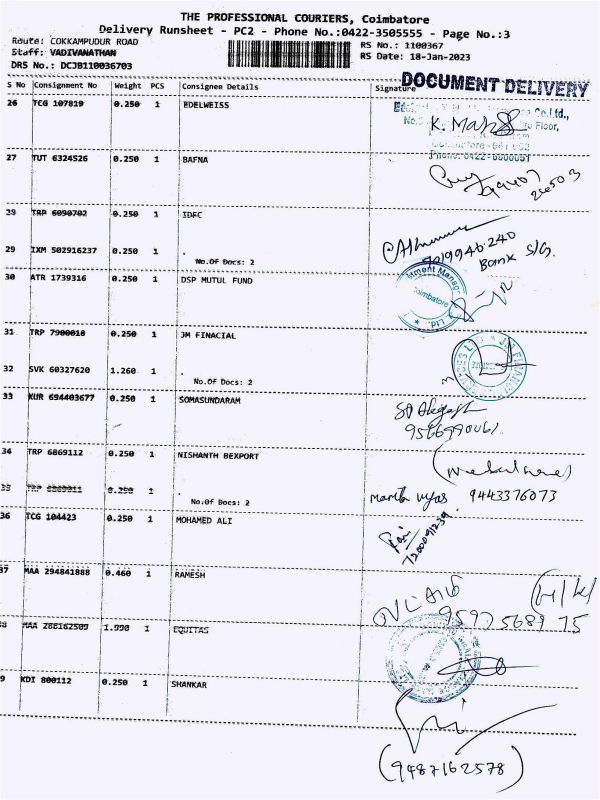 THE PROFESSIONAL COURIERS, Coimbatore
Delivery Runsheet - PC2 - Phone No.:0422-3505555 - Page No.:3
Route: COKKAMPUDUR ROAD
RS No.: 1100367
Staff: VADIVANATHAN
RS Date: 18-Jan-2023
DRS No.: DCJB110036703
DOCUMENT DELIVERY
S No Consignment No Weight PCS Consignee Details Signature
26 TCG 107819 0.250 1 EDELWEISS
Co.Ltd.,
Floor,
Phone: 0422-
27 TUT 6324526 0.250 1 BAFNA
99407
26503
28 TRP 6090702 0.250 1 IDFC
29 IXM 502916237 0.250 1 .
No.Of Docs: 2
9019946240
Bank
30 ATR 1739316 0.250 1 DSP MUTUL FUND
Coimbatore
31 TRP 7900018 0.250 1 JM FINACIAL
32 SVK 60327620 1.260 1 .
No.Of Docs: 2
33 KUR 694403677 0.250 1 SOMASUNDARAM
34 TRP 6869112 0.250 1 NISHANTH BEXPORT
35 TRP 6869011 0.250 1 .
No.Of Docs: 2
9443376073
36 TCG 104423 0.250 1 MOHAMED ALI
7200091239
37 MAA 294841888 0.460 1 RAMESH
95975689 75
38 MAA 288162509 1.990 1 EQUITAS
9 KDI 800112 0.250 1 SHANKAR
(9487162578)